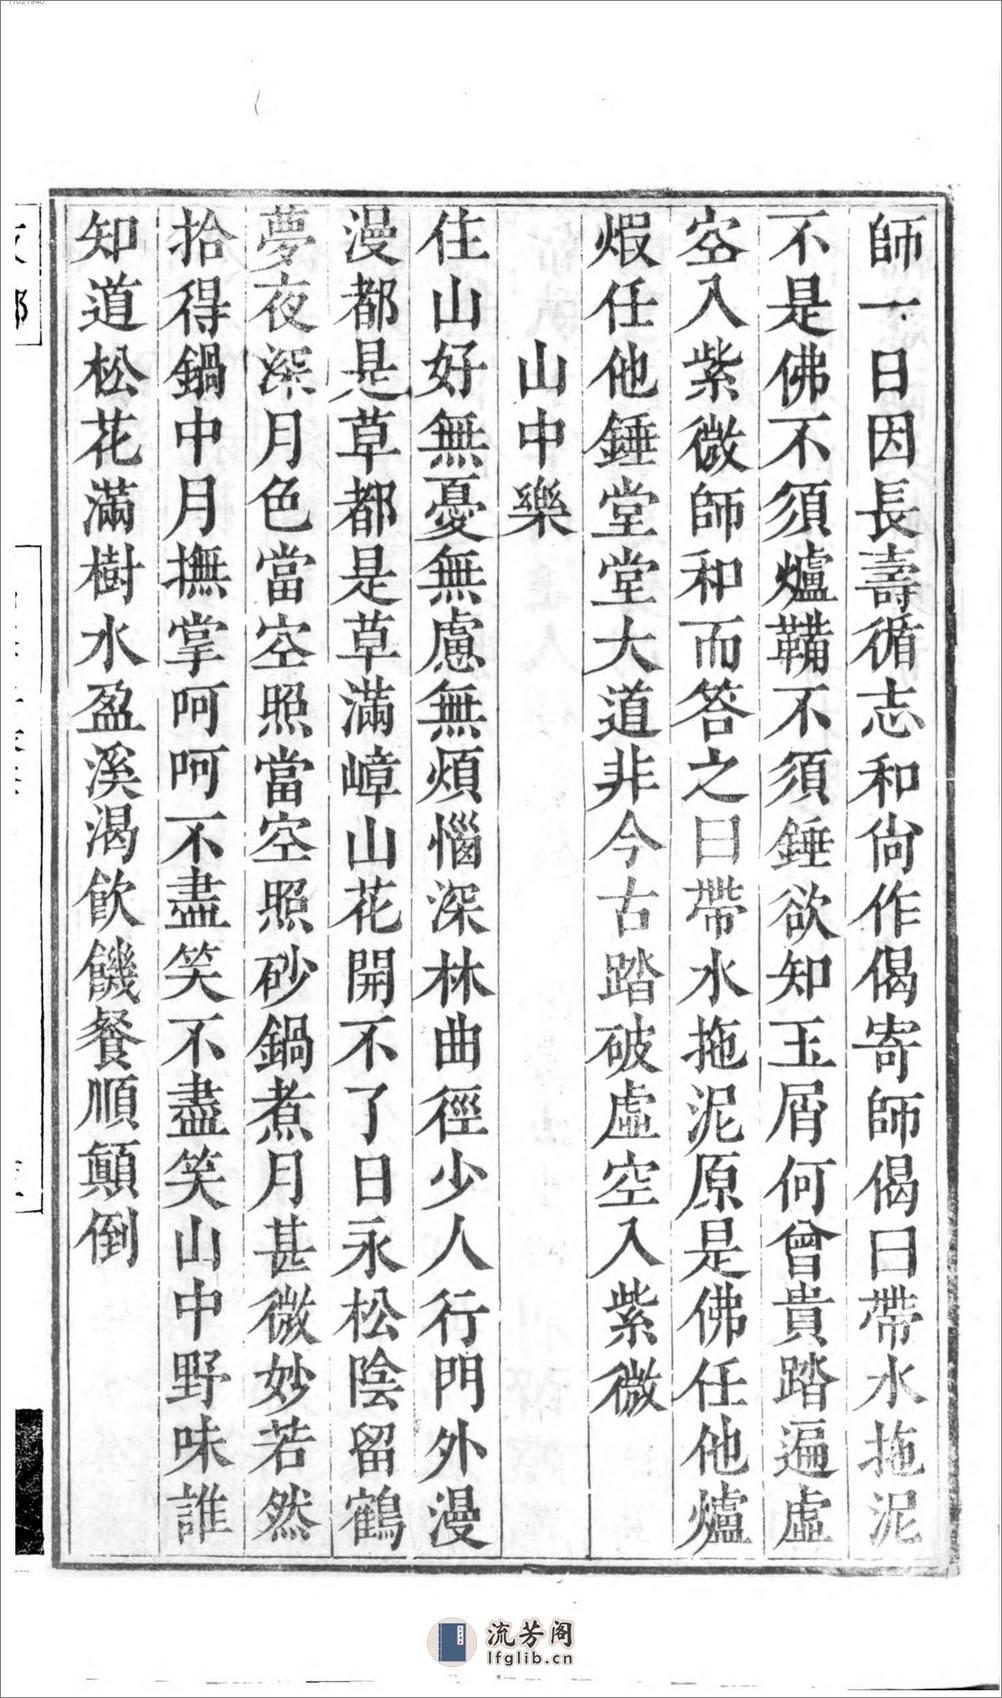 師一日因長壽循志和尙作偈寄師偈曰帶水拖泥
不是佛不須爐鞴不須錘欲知玉屑何曾貴踏遍虛
空入紫微師和而答之曰帶水拖泥原是佛任他爐
煆任他錘堂堂大道非今古踏破虛空入紫微
山中樂
住山好無憂無慮無煩惱深林曲徑少人行門外漫
漫都是草都是草滿嶂山花開不了日永松陰留鶴
夢夜深月色當空照當空照砂鍋煮月甚微妙若然
拾得鍋中月撫掌呵呵不盡笑不盡笑山中野味誰
知道松花滿樹水盈溪渴飮饑餐順顛倒
流芳阁
lfglib.cn